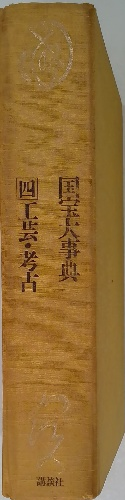 国宝大事典
四 工芸・考古
講談社